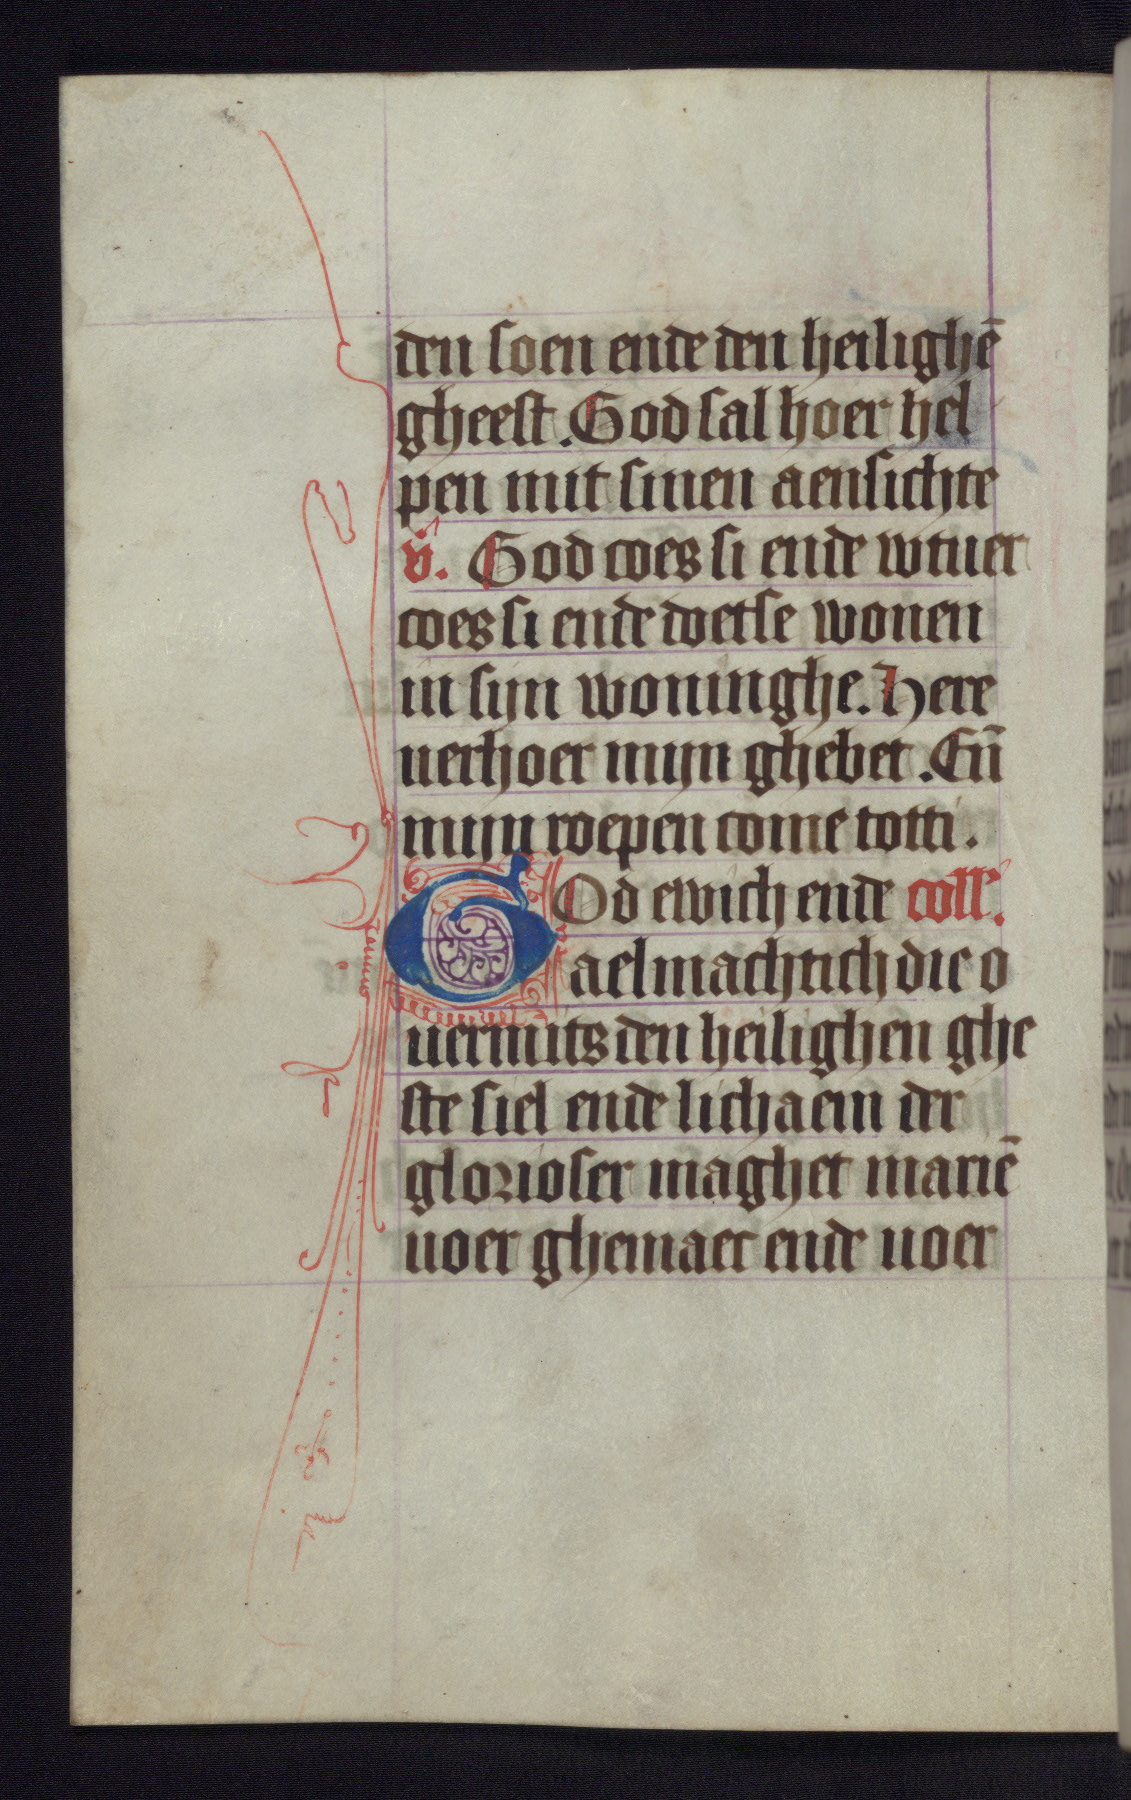 den soen ende den heilighē
gheest. God sal hoer hel
pen mit sinen aensichte
v̄. God coes si ende wtuer
coes si ende doetse wonen
in sijn woninghe. Here
uerhoer mijn ghebet. Eñ
mijn roepen come totti.
GOd ewich ende coll'.
aelmachtich die o
uermits den heilighen ghe
ste siel ende lichaem der
glorioser maghet mariē
uoer ghemaect ende uoer